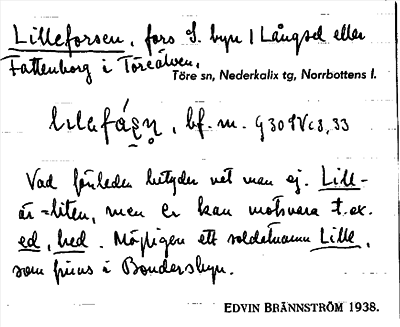 Lilleforsen, fors S. byn i Långsel eller
Fattenborg i Töreälven.
Töre sn, Nederkalix tg, Norrbottens l.
bf. m.
Vad förleden betyder vet man ej. Lill-
är = liten, men er kan motsvara t. ex.
ed, hed. Möjligen ett soldatnamn Lille,
som finns i Bondersbyn.
EDVIN BRÄNNSTRÖM 1938.